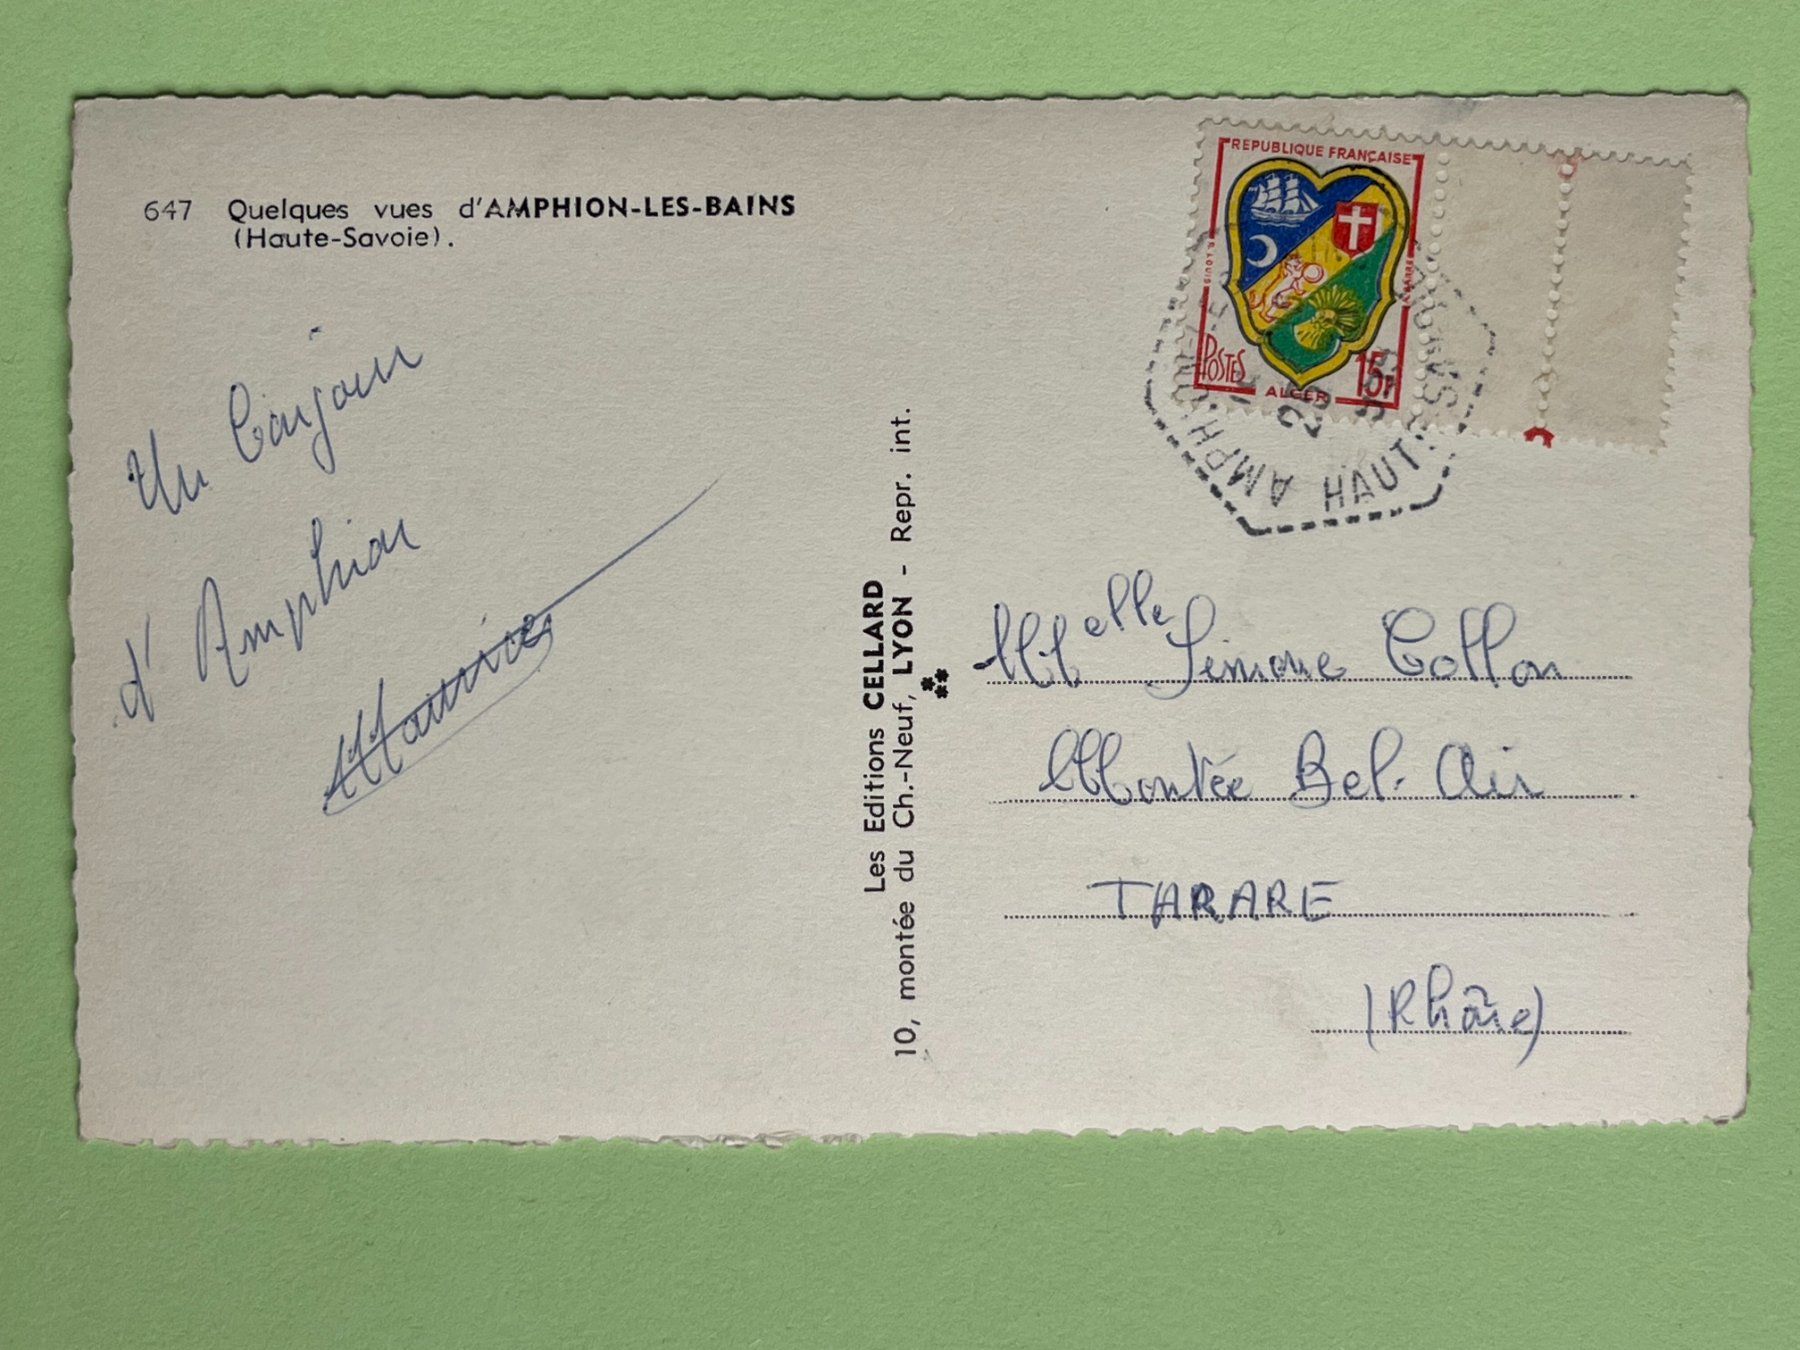 647 Quelques vues d'AMPHION-LES-BAINS
(Haute-Savoie).
Un bonjour
d'Amphion
Maurice
Les Editions CELLARD
10, montée du Ch.-Neuf, LYON - Repr. int.
REPUBLIQUE FRANÇAISE
POSTES
15F
ALGER
AMPHION-LES-BAINS
HAUTE
Melle Simone Collon
Montée Bel-Air
TARARE
(Rhône)